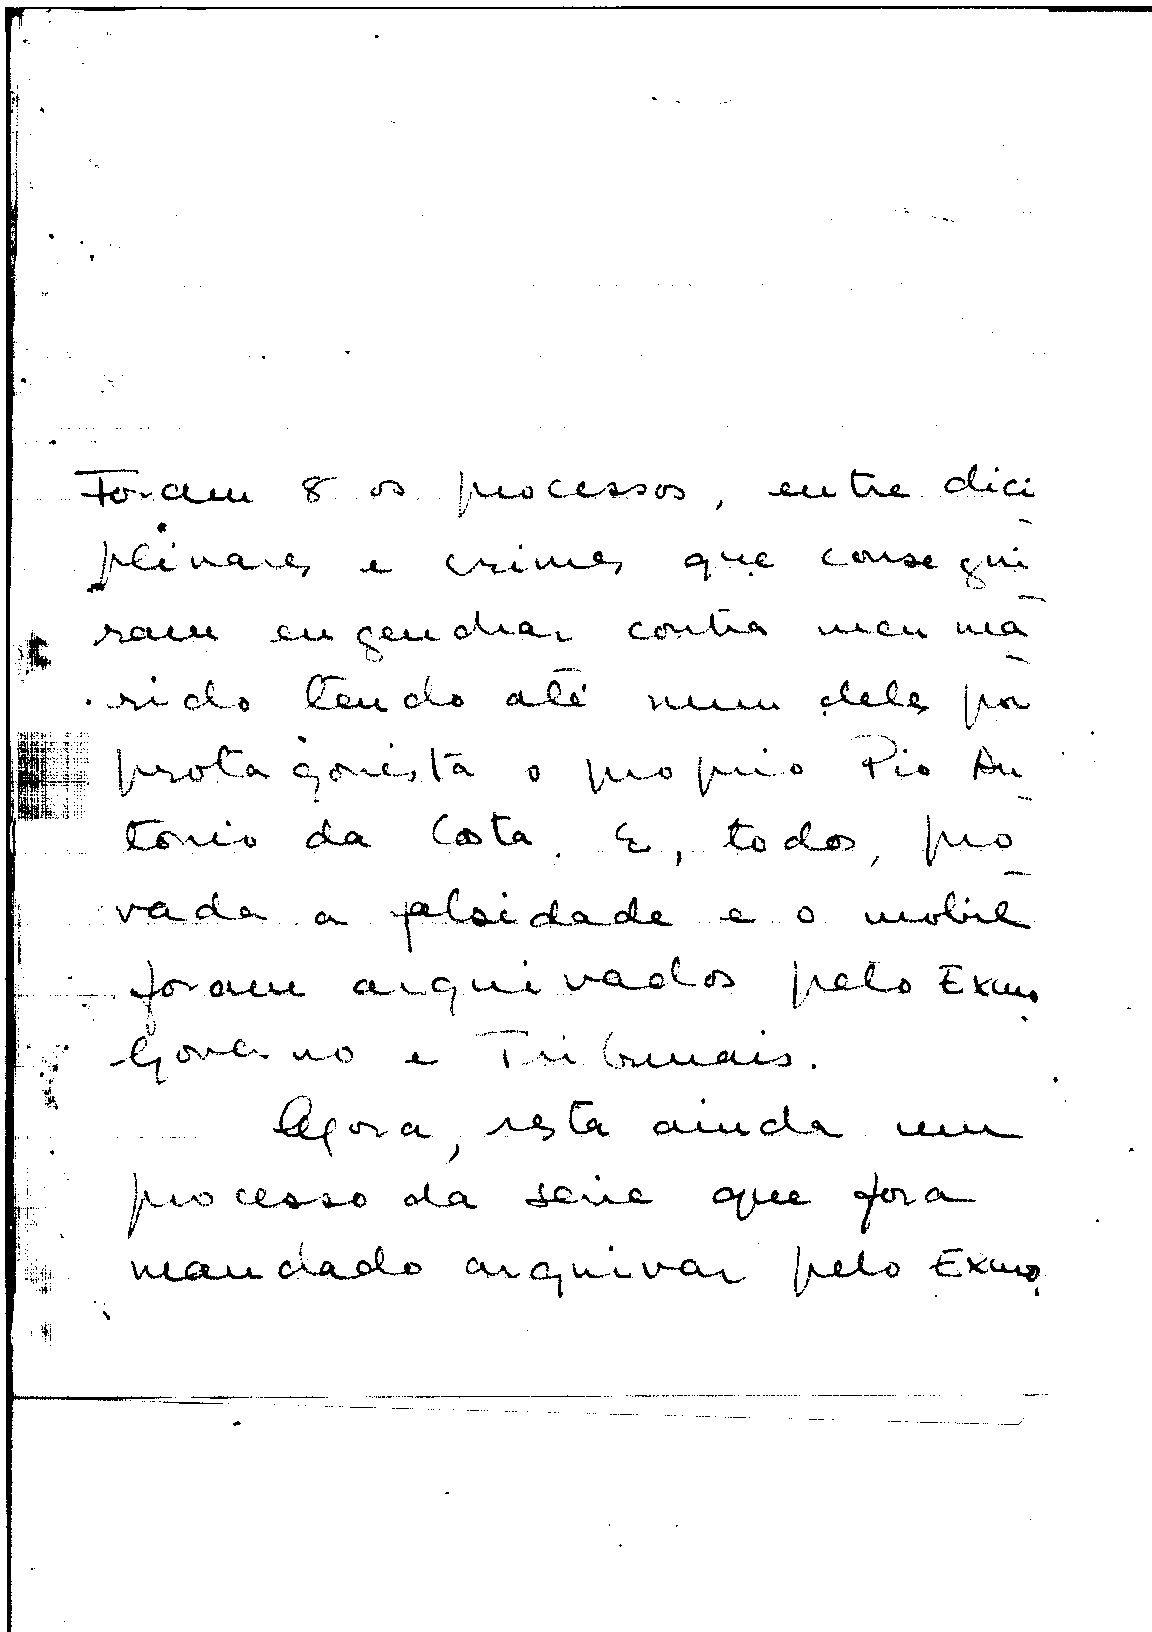 Foram 8 os processos, entre dici
plinares e crimes que consegui-
ram engendrar contra meu ma-
rido tendo até num deles por
protagonista o proprio Pio An-
tonio da Costa. E, todos, pro-
vada a falsidade e o mobil
foram arquivados pelo Exmo.
Governo e Tribunais.
Agora, resta ainda um
processo da serie que fora
mandado arquivar pelo Exmo.